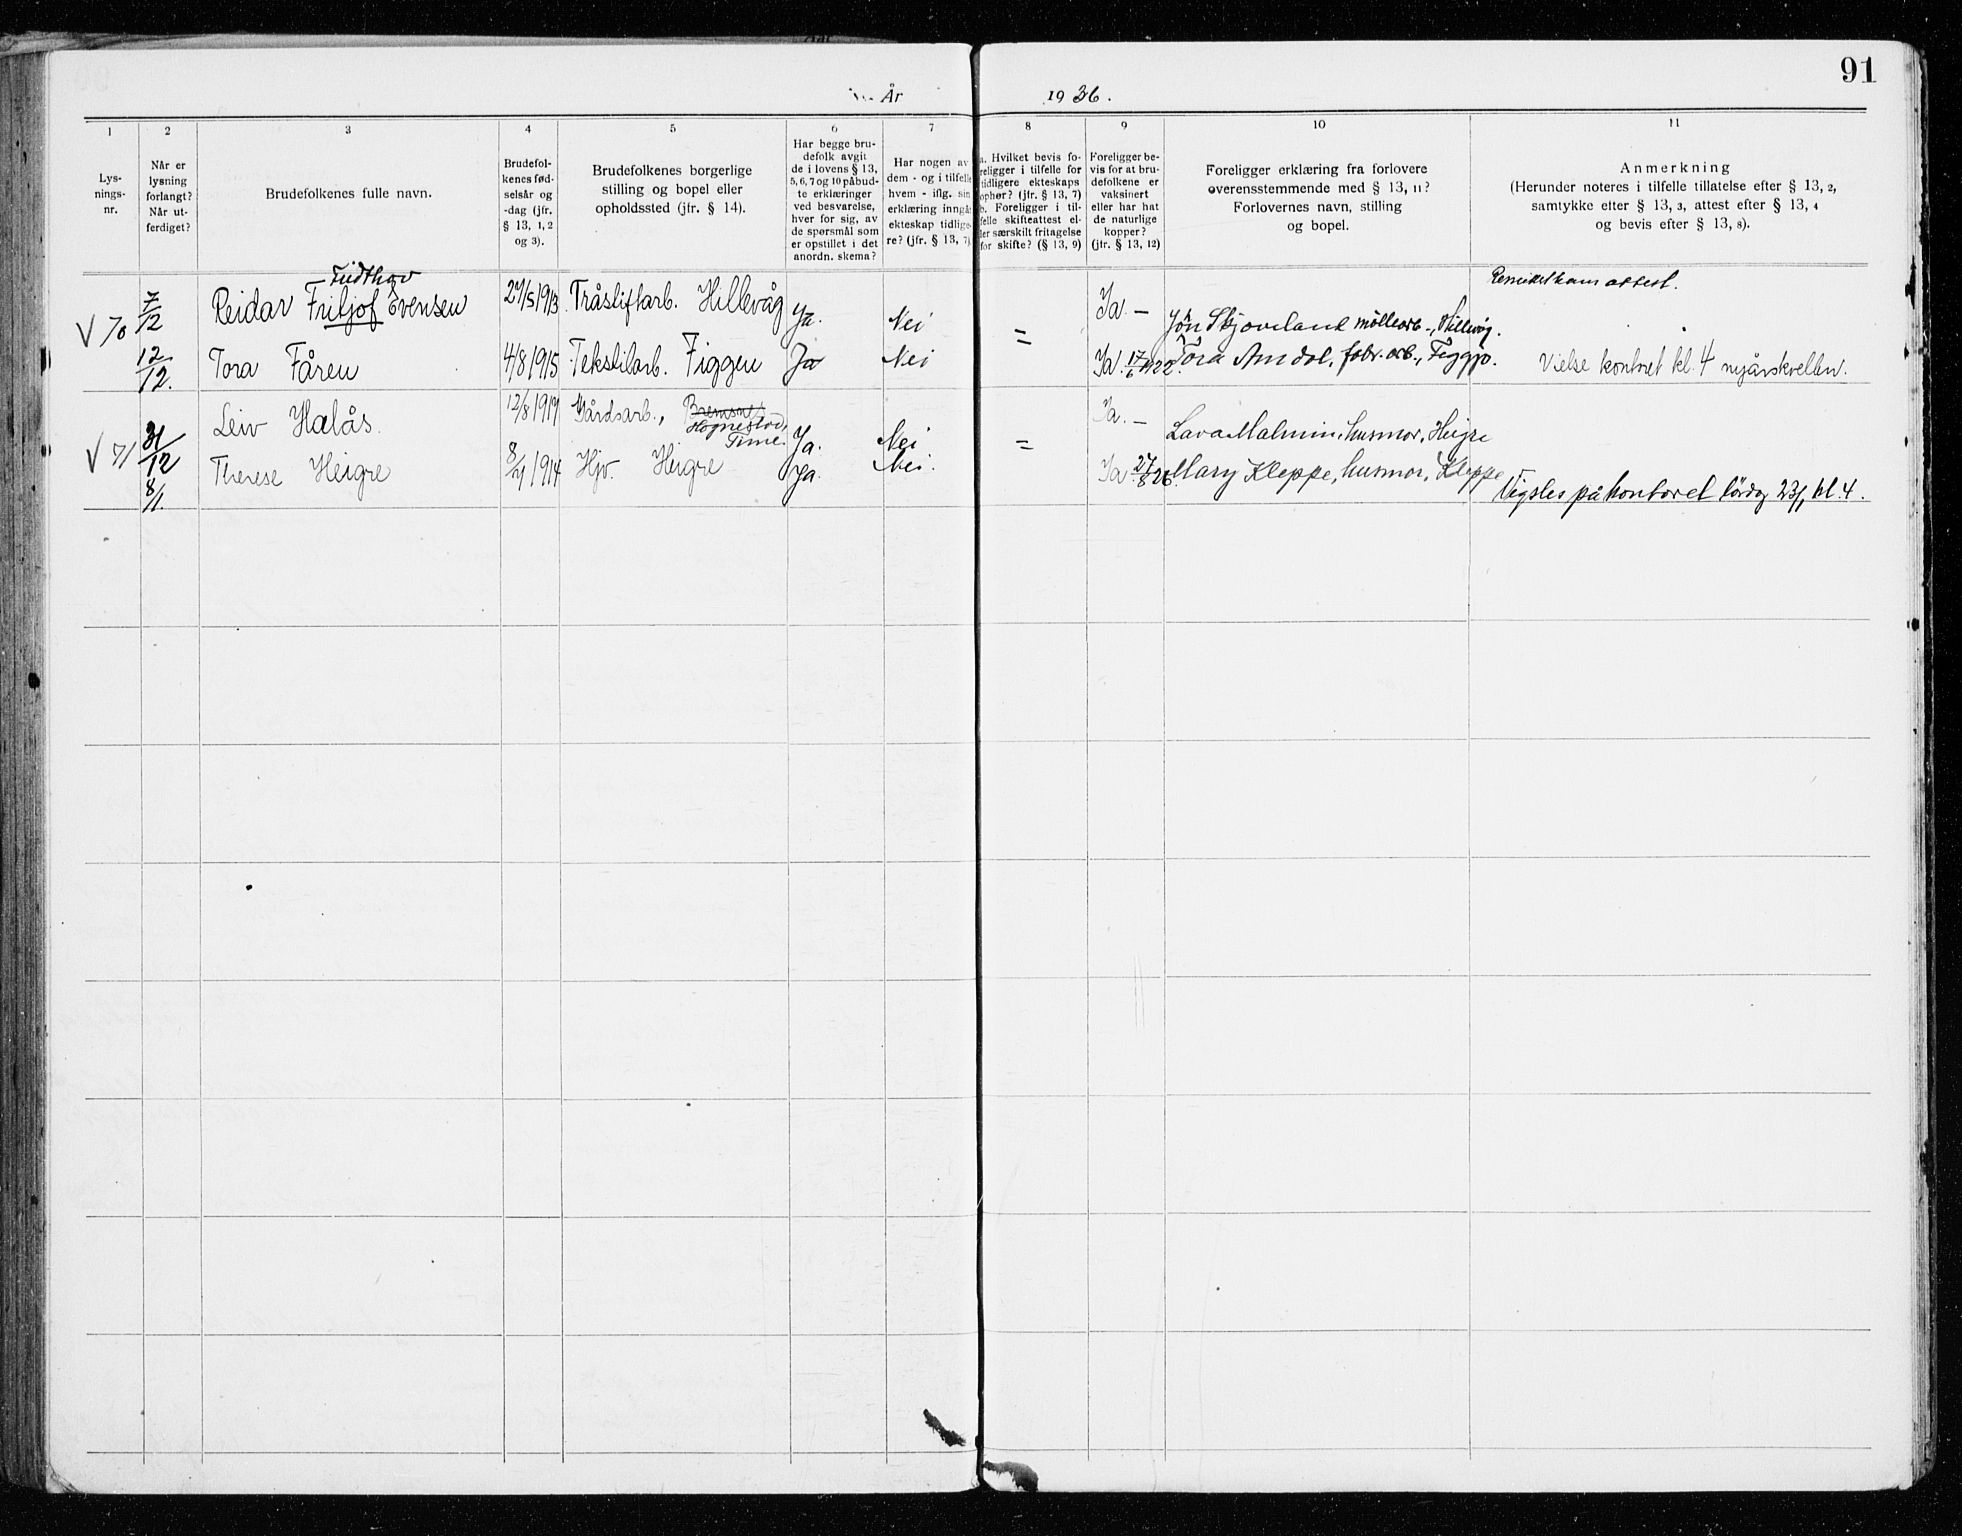 91
År 1936.
1 2 3 4 5 6 7 8 9 10 11
Lys-
nings-
nr.
Når er
lysning
forlangt?
Når ut-
ferdiget?
Brudefolkenes fulle navn.
Brudefol-
kenes fød-
selsår og
-dag (jfr.
§ 13, 1,2
og 3).
Brudefolkenes borgerlige
stilling og bopel eller
opholdssted (jfr. § 14).
Har begge bru-
defolk avgit
de i lovens § 13,
5, 6, 7 og 10 påbud-
te erklæringer
ved besvarelse,
hver for sig, av
de spørsmål som
er opstillet i det
anordn. skema?
Har nogen av
dem - og i tilfelle
hvem - iflg. sin
erklæring inngåt
ekteskap tidlige-
re? (jfr. § 13, 7).
a. Hvilket bevis fo-
religger i tilfelle for
tidligere ekteskaps
ophør? (jfr. § 13, 7)
b. Foreligger i til-
felle skifteattest el-
ler særskilt fritagelse
for skifte? (§ 13, 9)
Foreligger be-
vis for at bru-
defolkene er
vaksinert
eller har hat
de naturlige
kopper?
(jfr. § 13, 12)
Foreligger erklæring fra forlovere
overensstemmende med § 13, 11?
Forlovernes navn, stilling
og bopel.
Anmerkning
(Herunder noteres i tilfelle tillatelse efter § 13, 2,
samtykke efter § 13, 3, attest efter § 13, 4
og bevis efter § 13, 8).
V 70 7/12 Reidar Fritjof Evensen 27/5 1913. Tråsliftarb. Hillevåg Ja. Nei = Ja. — Jon Skjoveland mölleorb., Hillevåg. attest.
12/12. Tora Fåren 4/8 1915 Tekstilarb. Figgen Ja Nei Ja. 17/6 1922. Tora Amdal, fabr. arb., Figgjo. Vielse kontoret kl. 4 nyårskvelden.
V 71 31/12 Leiv Halås. 12/8 1917 Gårdsarb., Bremsnes
Hognestad,
Time. Ja. Nei = Ja. — Lava Malmin, husmor, Heigre
8/1. Therese Heigre 1914 Hjv. Heigre Ja. Nei. Ja. 27/8 26. Mary Kleppe, husmor, Kleppe
Vigsles på kontoret lördag 23/1 kl. 4.